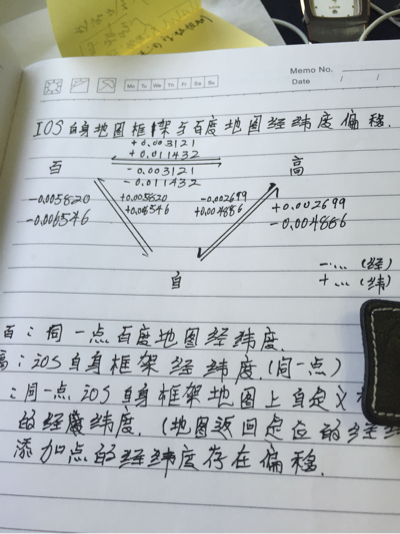 Memo No.
Mo Tu We Th Fr Sa Su
Date / /
IOS自身地图框架与百度地图经纬度偏移.
+0.003121
+0.011432
百
高
-0.003121
-0.011432
-0.005820
-0.006546
+0.005820
+0.006546
-0.002699
+0.004886
+0.002699
-0.004886
自
-.... (经)
+... (纬)
百:同一点百度地图经纬度.
高:iOS自身框架经纬度.(同一点)
:同一点iOS自身框架地图上自定义
的经纬度.(地图返回定位的经纬
添加点的经纬度存在偏移.